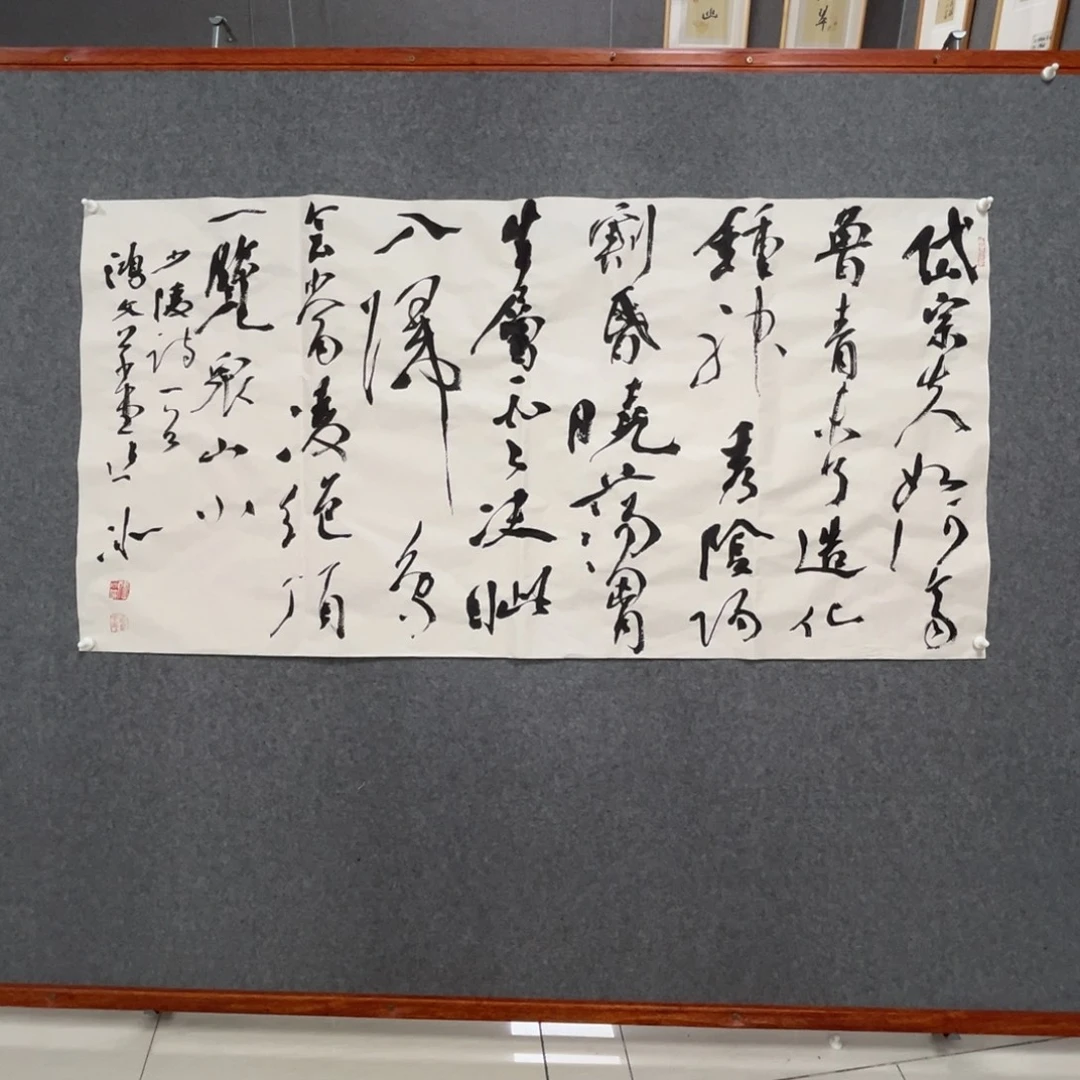 岱宗夫如何齊
魯青未了造化
鍾神秀陰陽
割昏曉蕩胷
生層云決眦
入歸鳥
會當凌絕頂
一覽衆山小
少陵詩一首
鴻文